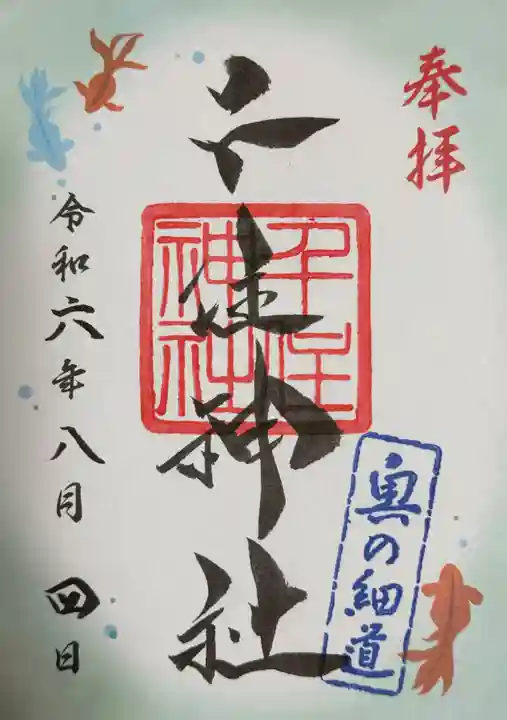 奉拝
千住神社
千住神社
奥の細道
令和六年八月四日